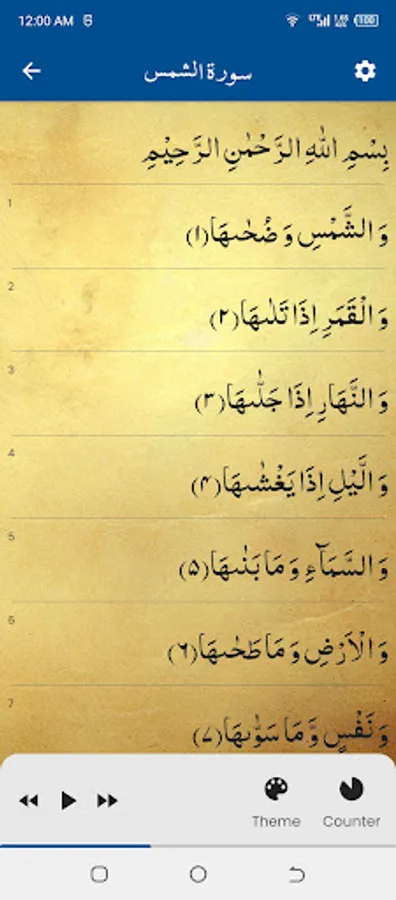 12:00 AM
100
سورة الشمس
بِسْمِ اللهِ الرَّحْمٰنِ الرَّحِيْمِ
1
وَالشَّمْسِ وَضُحٰىهَا(۱)
2
وَالْقَمَرِ اِذَا تَلٰىهَا(۲)
3
وَالنَّهَارِ اِذَا جَلّٰىهَا(۳)
4
وَالَّيْلِ اِذَا يَغْشٰىهَا(۴)
5
وَالسَّمَآءِ وَمَا بَنٰىهَا(۵)
6
وَالْاَرْضِ وَمَا طَحٰىهَا(۶)
7
وَنَفْسٍ وَّمَا سَوّٰىهَا(۷)
Theme
Counter